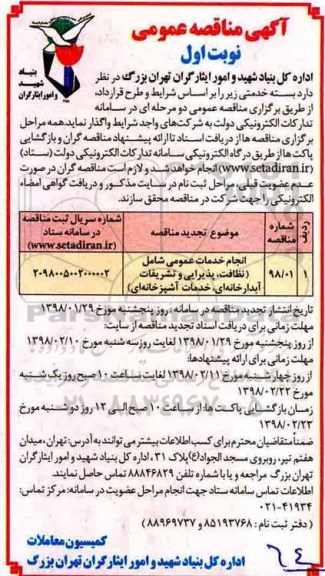 آگهی مناقصه عمومی
نوبت اول
بنیاد شهید و امور ایثارگران
اداره کل بنیاد شهید و امور ایثارگران تهران بزرگ در نظر
دارد بسته خدمتی زیر را بر اساس شرایط و طرح قرارداد،
از طریق برگزاری مناقصه عمومی دو مرحله ای در سامانه
تدارکات الکترونیکی دولت به شرکت‌های واجد شرایط واگذار نماید. همه مراحل
برگزاری مناقصه ها از دریافت اسناد تا ارائه پیشنهاد مناقصه گران و بازگشایی
پاکت ها از طریق درگاه الکترونیکی سامانه تدارکات الکترونیکی دولت (ستاد)
(www.setadiran.ir) انجام خواهد شد و لازم است مناقصه گران در صورت
عدم عضویت قبلی، مراحل ثبت نام در سایت مذکور و دریافت گواهی امضاء
الکترونیکی را جهت شرکت در مناقصه محقق سازند.
شماره مناقصه | موضوع تجدید مناقصه | شماره سریال ثبت مناقصه در سامانه ستاد (www.setadiran.ir)
۱ | ۹۸/۰۱ | انجام خدمات عمومی شامل (نظافت، پذیرایی و تشریفات آبدارخانه‌ای، خدمات آشپزخانه‌ای) | ۲۰۹۸۰۰۵۰۰۲۰۰۰۰۰۲
تاریخ انتشار تجدید مناقصه در سامانه: روز پنجشنبه مورخ ۱۳۹۸/۰۱/۲۹
مهلت زمانی برای دریافت اسناد تجدید مناقصه از سایت:
از روز پنجشنبه مورخ ۱۳۹۸/۰۱/۲۹ لغایت روز سه شنبه مورخ ۱۳۹۸/۰۲/۱۰
مهلت زمانی برای ارائه پیشنهادها:
از روز چهارشنبه مورخ ۱۳۹۸/۰۲/۱۱ لغایت ساعت ۱۰ صبح روز یک شنبه
مورخ ۱۳۹۸/۰۲/۲۲
زمان بازگشایی پاکت ها: از ساعت ۱۰ صبح الی ۱۲ روز دوشنبه مورخ
۱۳۹۸/۰۲/۲۳
ضمناً متقاضیان محترم برای کسب اطلاعات بیشتر می توانند به آدرس: تهران، میدان
هفتم تیر، روبروی مسجد الجواد(ع) پلاک ۳۱، اداره کل بنیاد شهید و امور ایثارگران
تهران بزرگ مراجعه و یا با شماره تلفن ۸۸۴۶۸۲۹ تماس حاصل نمایند.
اطلاعات تماس سامانه ستاد جهت انجام مراحل عضویت در سامانه: مرکز تماس:
۰۲۱-۴۱۹۳۴
(دفتر ثبت نام : ۸۵۱۹۳۷۶۸ و ۸۸۹۶۹۷۳۷)
کمیسیون معاملات
اداره کل بنیاد شهید و امور ایثارگران تهران بزرگ